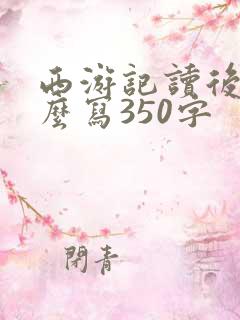 西游記讀後
麼寫350字
閉青